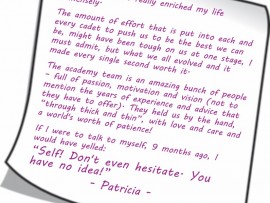 really enriched my life
The amount of effort that is put into each and
every cadet to push us to be the best we can
be, might have been tough on us at one stage, I
must admit, but what we all evolved and it
made every single second worth it-
The academy team is an amazing bunch of people
- full of passion, motivation and vision (not to
mention the years of experience and advice that
they have to offer). They held us by the hand,
"through thick and thin", with love and care and
a world's worth of patience!
If I were to talk to myself, 9 months ago, I
would have yelled:
"Self! Don't even hesitate. You
have no idea!"
- Patricia -